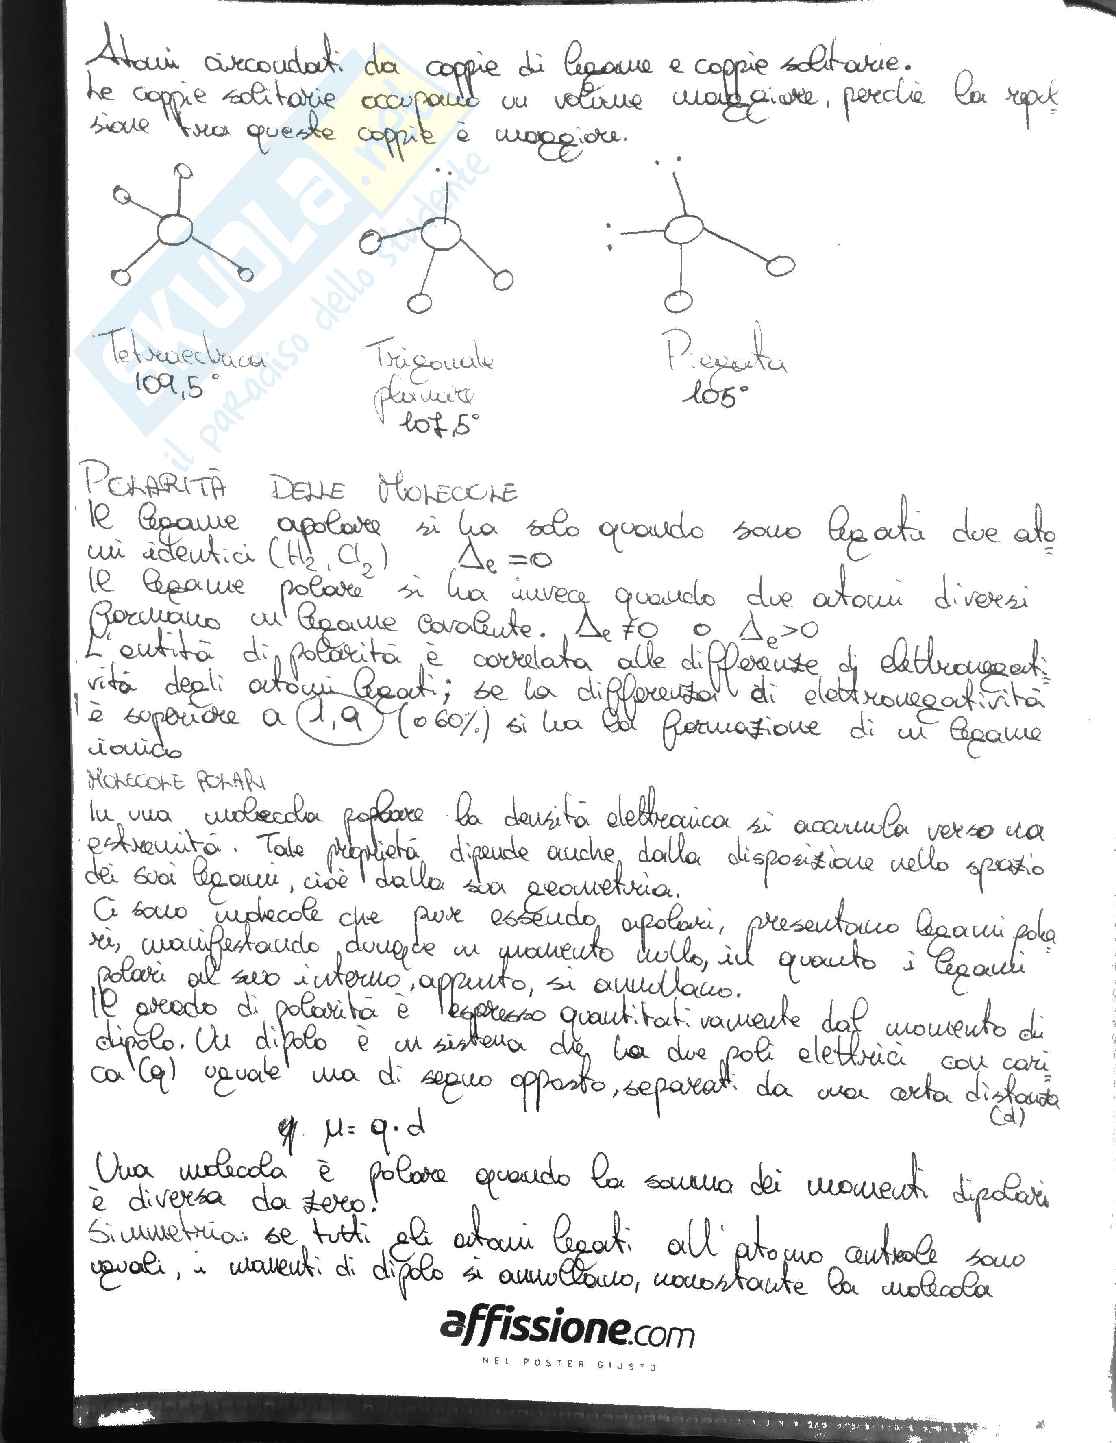 Atomi circondati da coppie di legame e coppie solitarie.
Le coppie solitarie occupano un volume maggiore, perchè la repul=
sione tra queste coppie è maggiore.
Tetraedrica
109,5°
Trigonale
planare
107,5°
Piegata
105°
SKUOLA.net
il paradiso dello studente
POLARITÀ DELLE MOLECOLE
Il legame apolare si ha solo quando sono legati due ato=
mi identici (H2, Cl2) Δe=0
Il legame polare si ha invece quando due atomi diversi
formano un legame covalente. Δe≠0 o Δe>0
L'entità di polarità è correlata alle differenze di elettronegati=
vità degli atomi legati; se la differenza di elettronegatività
è superiore a 1,9 (o 60%) si ha la formazione di un legame
ionico
MOLECOLE POLARI
In una molecola polare la densità elettronica si accumula verso una
estremità. Tale proprietà dipende anche dalla disposizione nello spazio
dei suoi legami, cioè dalla sua geometria.
Ci sono molecole che pur essendo apolari, presentano legami pola=
ri, manifestando dunque un momento nullo, in quanto i legami
polari al suo interno, appunto, si annullano.
Il grado di polarità è espresso quantitativamente dal momento di
dipolo. Un dipolo è un sistema che ha due poli elettrici con cari=
ca (q) uguale ma di segno opposto, separati da una certa distanza
(d)
μ= q·d
Una molecola è polare quando la somma dei momenti dipolari
è diversa da zero!
Simmetria: se tutti gli atomi legati all'atomo centrale sono
uguali, i momenti di dipolo si annullano, nonostante la molecola
affissione.com
NEL POSTER GIUSTO